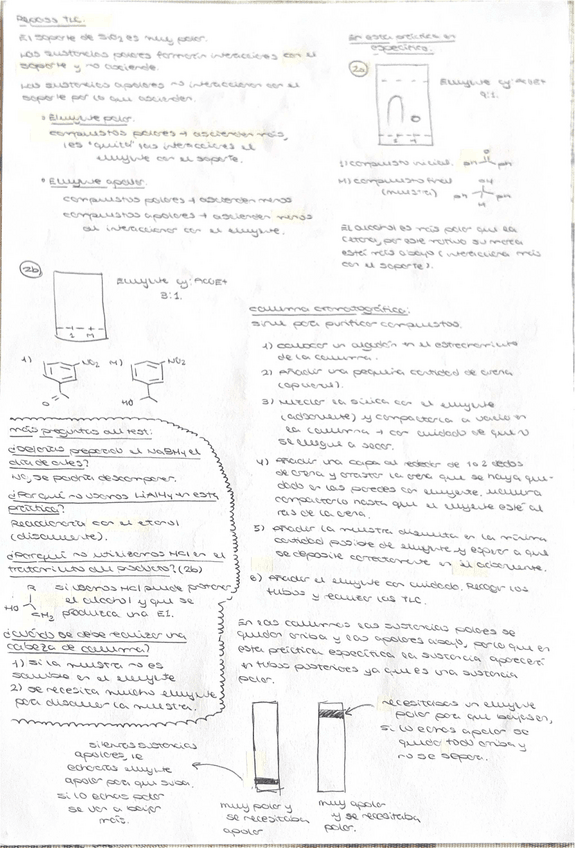 Repaso TLC.
El soporte de SiO2 es muy polar.
Las sustancias polares formarán interacciones con el
soporte y no asciende.
Las sustancias apolares no interaccionan con el
soporte por lo que ascienden.
• Eluyente polar.
compuestos polares → ascienden más,
les "quita" las interacciones el
eluyente con el soporte.
• Eluyente apolar.
compuestos polares → ascienden menos
compuestos apolares → ascienden menos
al interaccionar con el eluyente.
En esta práctica en
específica.
2a
Eluyente cy:AcOEt
9:1.
I M
I) compuesto inicial.
O
Ph Ph
M) compuesto final
(muestra)
OH
Ph Ph
H
El alcohol es más polar que la
cetona, por este motivo su mancha
está más abajo (interacciona más
con el soporte).
2b
Eluyente cy:AcOEt
3:1.
I M
1) NO2 M) NO2
O HO
Columna cromatográfica:
sirve para purificar compuestos.
1) colocar un algodón en el estrechamiento
de la columna.
2) Añadir una pequeña cantidad de arena
3) Mezclar la sílica con el eluyente
(adsorbente) y compactarla a vacío en
la columna → con cuidado de que no
se llegue a secar.
4) Añadir una capa al rededor de 1 o 2 dedos
de arena y arrastrar la arena que se haya que-
dado en las paredes con eluyente,
compactarlo hasta que el eluyente esté al
ras de la arena.
5) Añadir la muestra disuelta en la mínima
cantidad posible de eluyente y esperar a que
se deposite correctamente en el adsorbente.
6) Añadir el eluyente con cuidado. Recoger los
tubos y realizar las TLC.
En las columnas las sustancias polares se
quedan arriba y las apolares abajo, por lo que en
esta práctica específica la sustancia aparecerá
en tubos posteriores ya que es una sustancia
polar.
más preguntas del test:
¿Deberías preparar el NaBH4 el
día de antes?
No, se podría descomponer.
¿Por qué no usamos LiAlH4 en esta
práctica?
Reaccionaría con el etanol
(disolvente).
¿Por qué no utilizamos HCl en el
tratamiento del producto? (2b)
R
HO
CH3
si usamos HCl puede protonar
el alcohol y que se
produzca una E1.
¿Cuándo se debe realizar una
cabeza de columna?
1) si la muestra no es
soluble en el eluyente
2) se necesita mucho eluyente
para disolver la muestra.
si eras sustancias
apolares, le
echarías eluyente
apolar para que suba.
si lo echas polar
se van a bajar
más.
muy polar y
se necesitaba
apolar
muy apolar
y se necesitaba
polar.
necesitabas un eluyente
polar para que bajasen,
si lo echas apolar se
queda todo arriba y
no se separa.